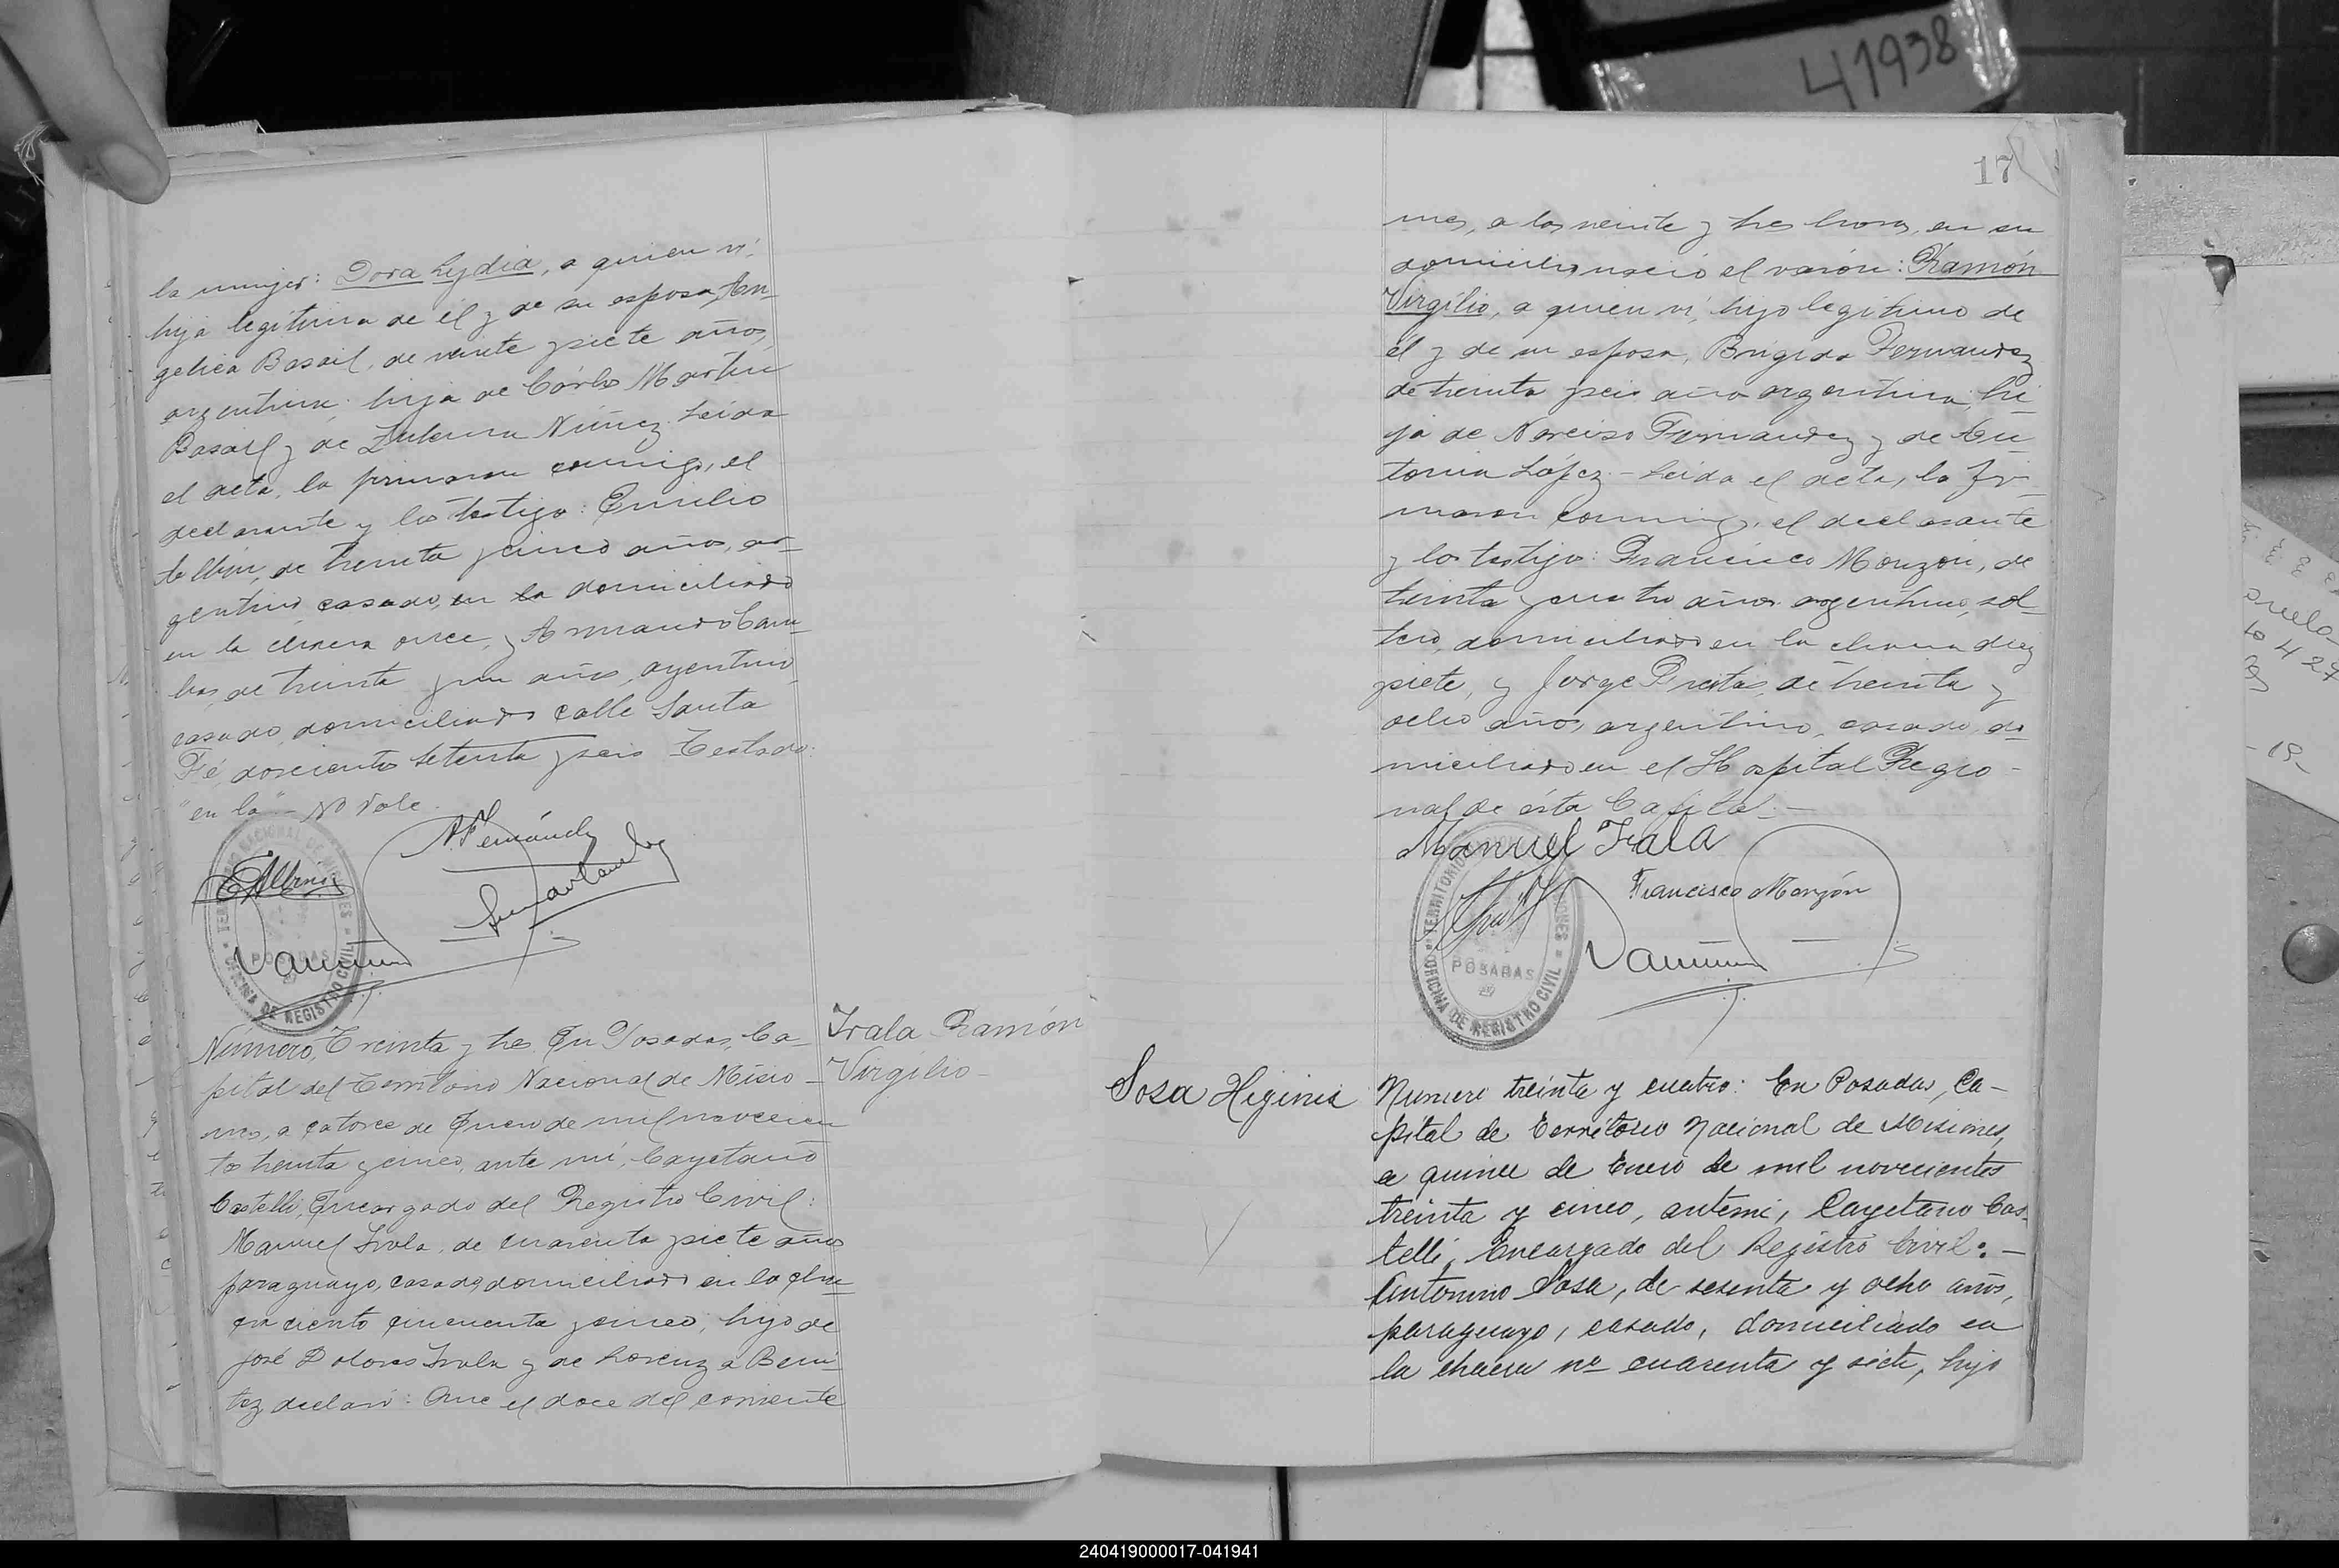 41938
la mujer: Dora Lydia, a quien vi,
hija legitima de él y de su esposa, An-
gelica Basail, de veinte y siete años,
argentina, hija de Cárlos Martin
Basail y de Zulema Núñez. Leida
el acta, la firmaron conmigo, el
declarante y los testigos: Emilio
Albini, de treinta y cinco años, ar-
gentino, casado, en la domiciliado
en la chacra once, y Armando
de treinta y un años, argentino,
casado, domiciliado calle Santa
Fé, doscientos setenta y seis Testado:
"en la" - No vale.
EAlbini
TERRITORIO NACIONAL DE MISIONES
POSADAS
OFICINA DE REGISTRO CIVIL
Número Treinta y tres En Posadas, Ca-
pital del Territorio Nacional de Misio-
nes, a catorce de Enero de mil novecien
tos treinta y cinco, ante mi, Cayetano
Castelli, Encargado del Registro Civil:
Manuel Irala, de cuarenta y siete años
paraguayo, casado, domiciliado en la cha-
cra ciento cincuenta y cinco, hijo de
José Dolores Irala y de Lorenza Beni-
tez, declaró: Que el doce del corriente
Irala Ramón
Virgilio-
17
mes, a las veinte y tres horas, en su
domicilio nació el varón: Ramón
Virgilio, a quien vi, hijo legitimo de
él y de su esposa, Brigida Fernandez
de treinta y seis años argentina, hi-
ja de Narciso Fernandez y de An-
tonia López.- Leida el acta, la fir-
maron conmigo, el declarante
y los testigos: Francisco Monzón, de
treinta y cuatro años argentino, sol-
tero, domiciliado en la chacra diez
y siete, y Jorge de treinta y
ocho años, argentino, casado, do-
miciliado en el Hospital Regio-
nal de ésta Capital.-
Manuel Irala
Francisco Monzón
TERRITORIO NACIONAL DE MISIONES
POSADAS
OFICINA DE REGISTRO CIVIL
Sosa Higinia
Numero treinta y cuatro: En Posadas, Ca-
pital de Territorio Nacional de Misiones,
a quince de Enero de mil novecientos
treinta y cinco, antemi, Cayetano Cas-
telli, Encargado del Registro Civil:-
Antonino Sosa, de sesenta y ocho años,
paraguayo, casado, domiciliado en
la chacra nº cuarenta y siete, hijo
240419000017-041941